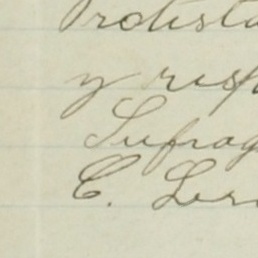 Protesta
y resp
Sufrag
C. Lere